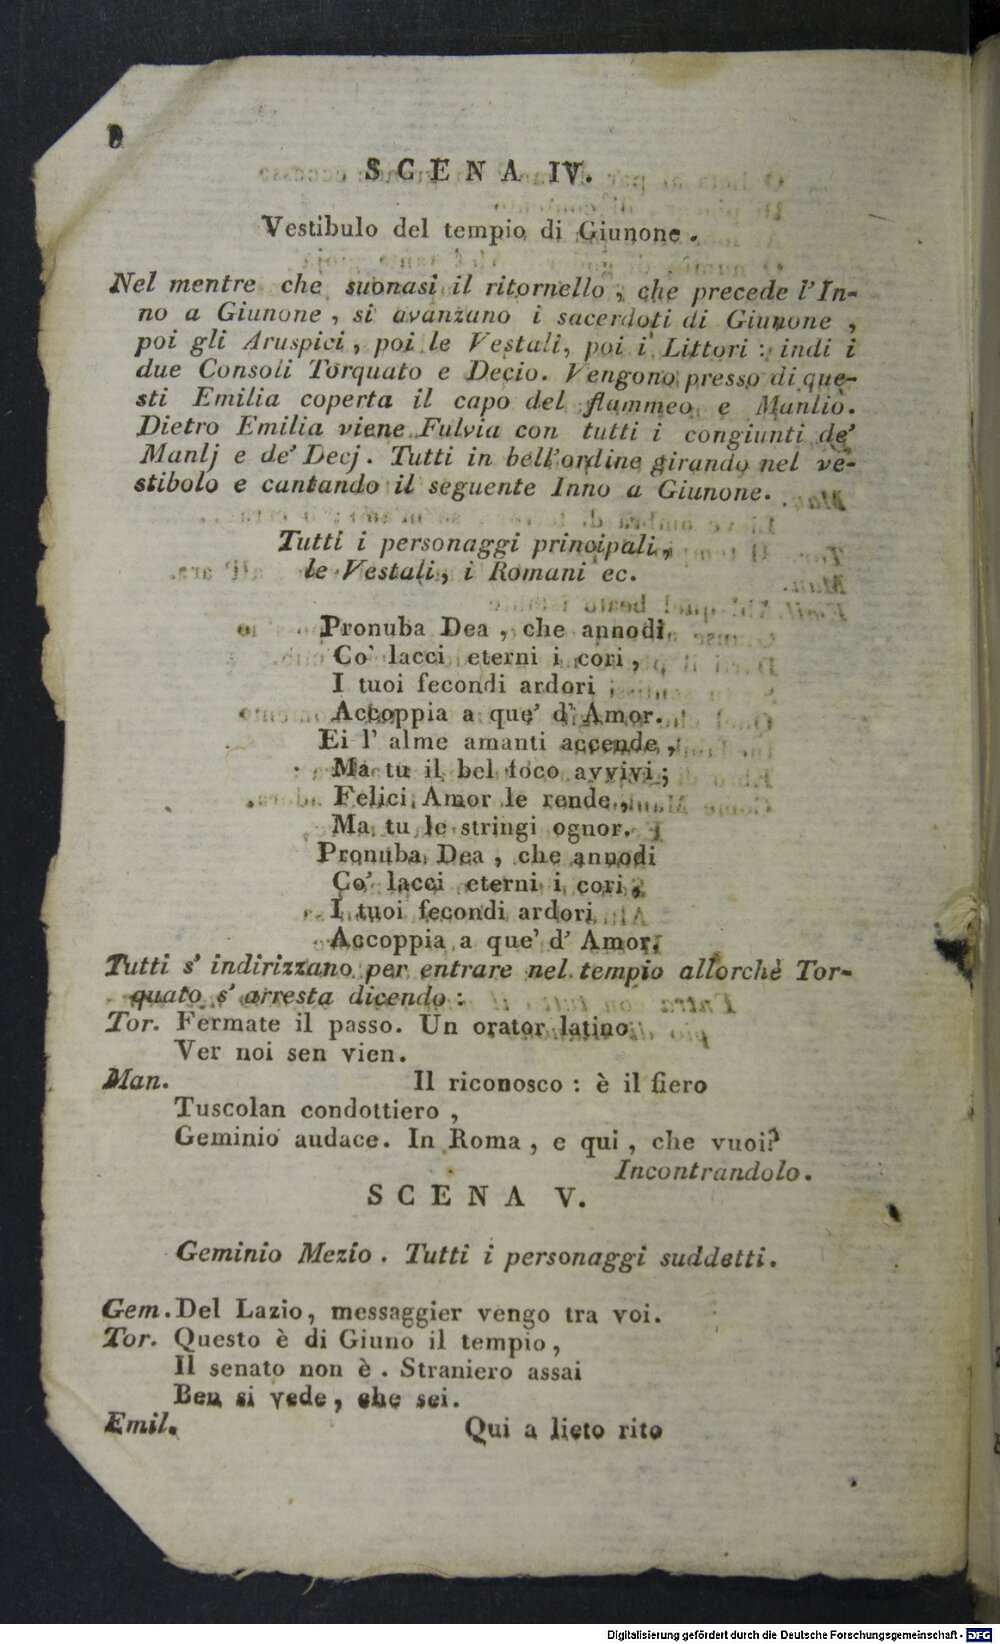 SCENA IV.
Vestibulo del tempio di Giunone.
Nel mentre che suonasi il ritornello, che precede l'In-
no a Giunone, si avanzano i sacerdoti di Giunone,
poi gli Aruspici, poi le Vestali, poi i Littori: indi i
due Consoli Torquato e Decio. Vengono presso di que-
sti Emilia coperta il capo del flammeo e Manlio.
Dietro Emilia viene Fulvia con tutti i congiunti de'
Manlj e de' Decj. Tutti in bell'ordine girando nel ve-
stibolo e cantando il seguente Inno a Giunone.
Tutti i personaggi principali,
le Vestali, i Romani ec.
Pronuba Dea, che annodi
Co' lacci eterni i cori,
I tuoi fecondi ardori
Accoppia a que' d' Amor.
Ei l' alme amanti accende,
Ma tu il bel foco avvivi;
Felici Amor le rende,
Ma tu le stringi ognor.
Pronuba Dea, che annodi
Co' lacci eterni i cori,
I tuoi fecondi ardori
Accoppia a que' d' Amor.
Tutti s' indirizzano per entrare nel tempio allorchè Tor-
quato s' arresta dicendo:
Tor. Fermate il passo. Un orator latino
Ver noi sen vien.
Man. Il riconosco: è il fiero
Tuscolan condottiero,
Geminio audace. In Roma, e qui, che vuoi?
Incontrandolo.
SCENA V.
Geminio Mezio. Tutti i personaggi suddetti.
Gem. Del Lazio, messaggier vengo tra voi.
Tor. Questo è di Giuno il tempio,
Il senato non è. Straniero assai
Ben si vede, che sei.
Emil. Qui a lieto rito
Digitalisierung gefördert durch die Deutsche Forschungsgemeinschaft - DFG